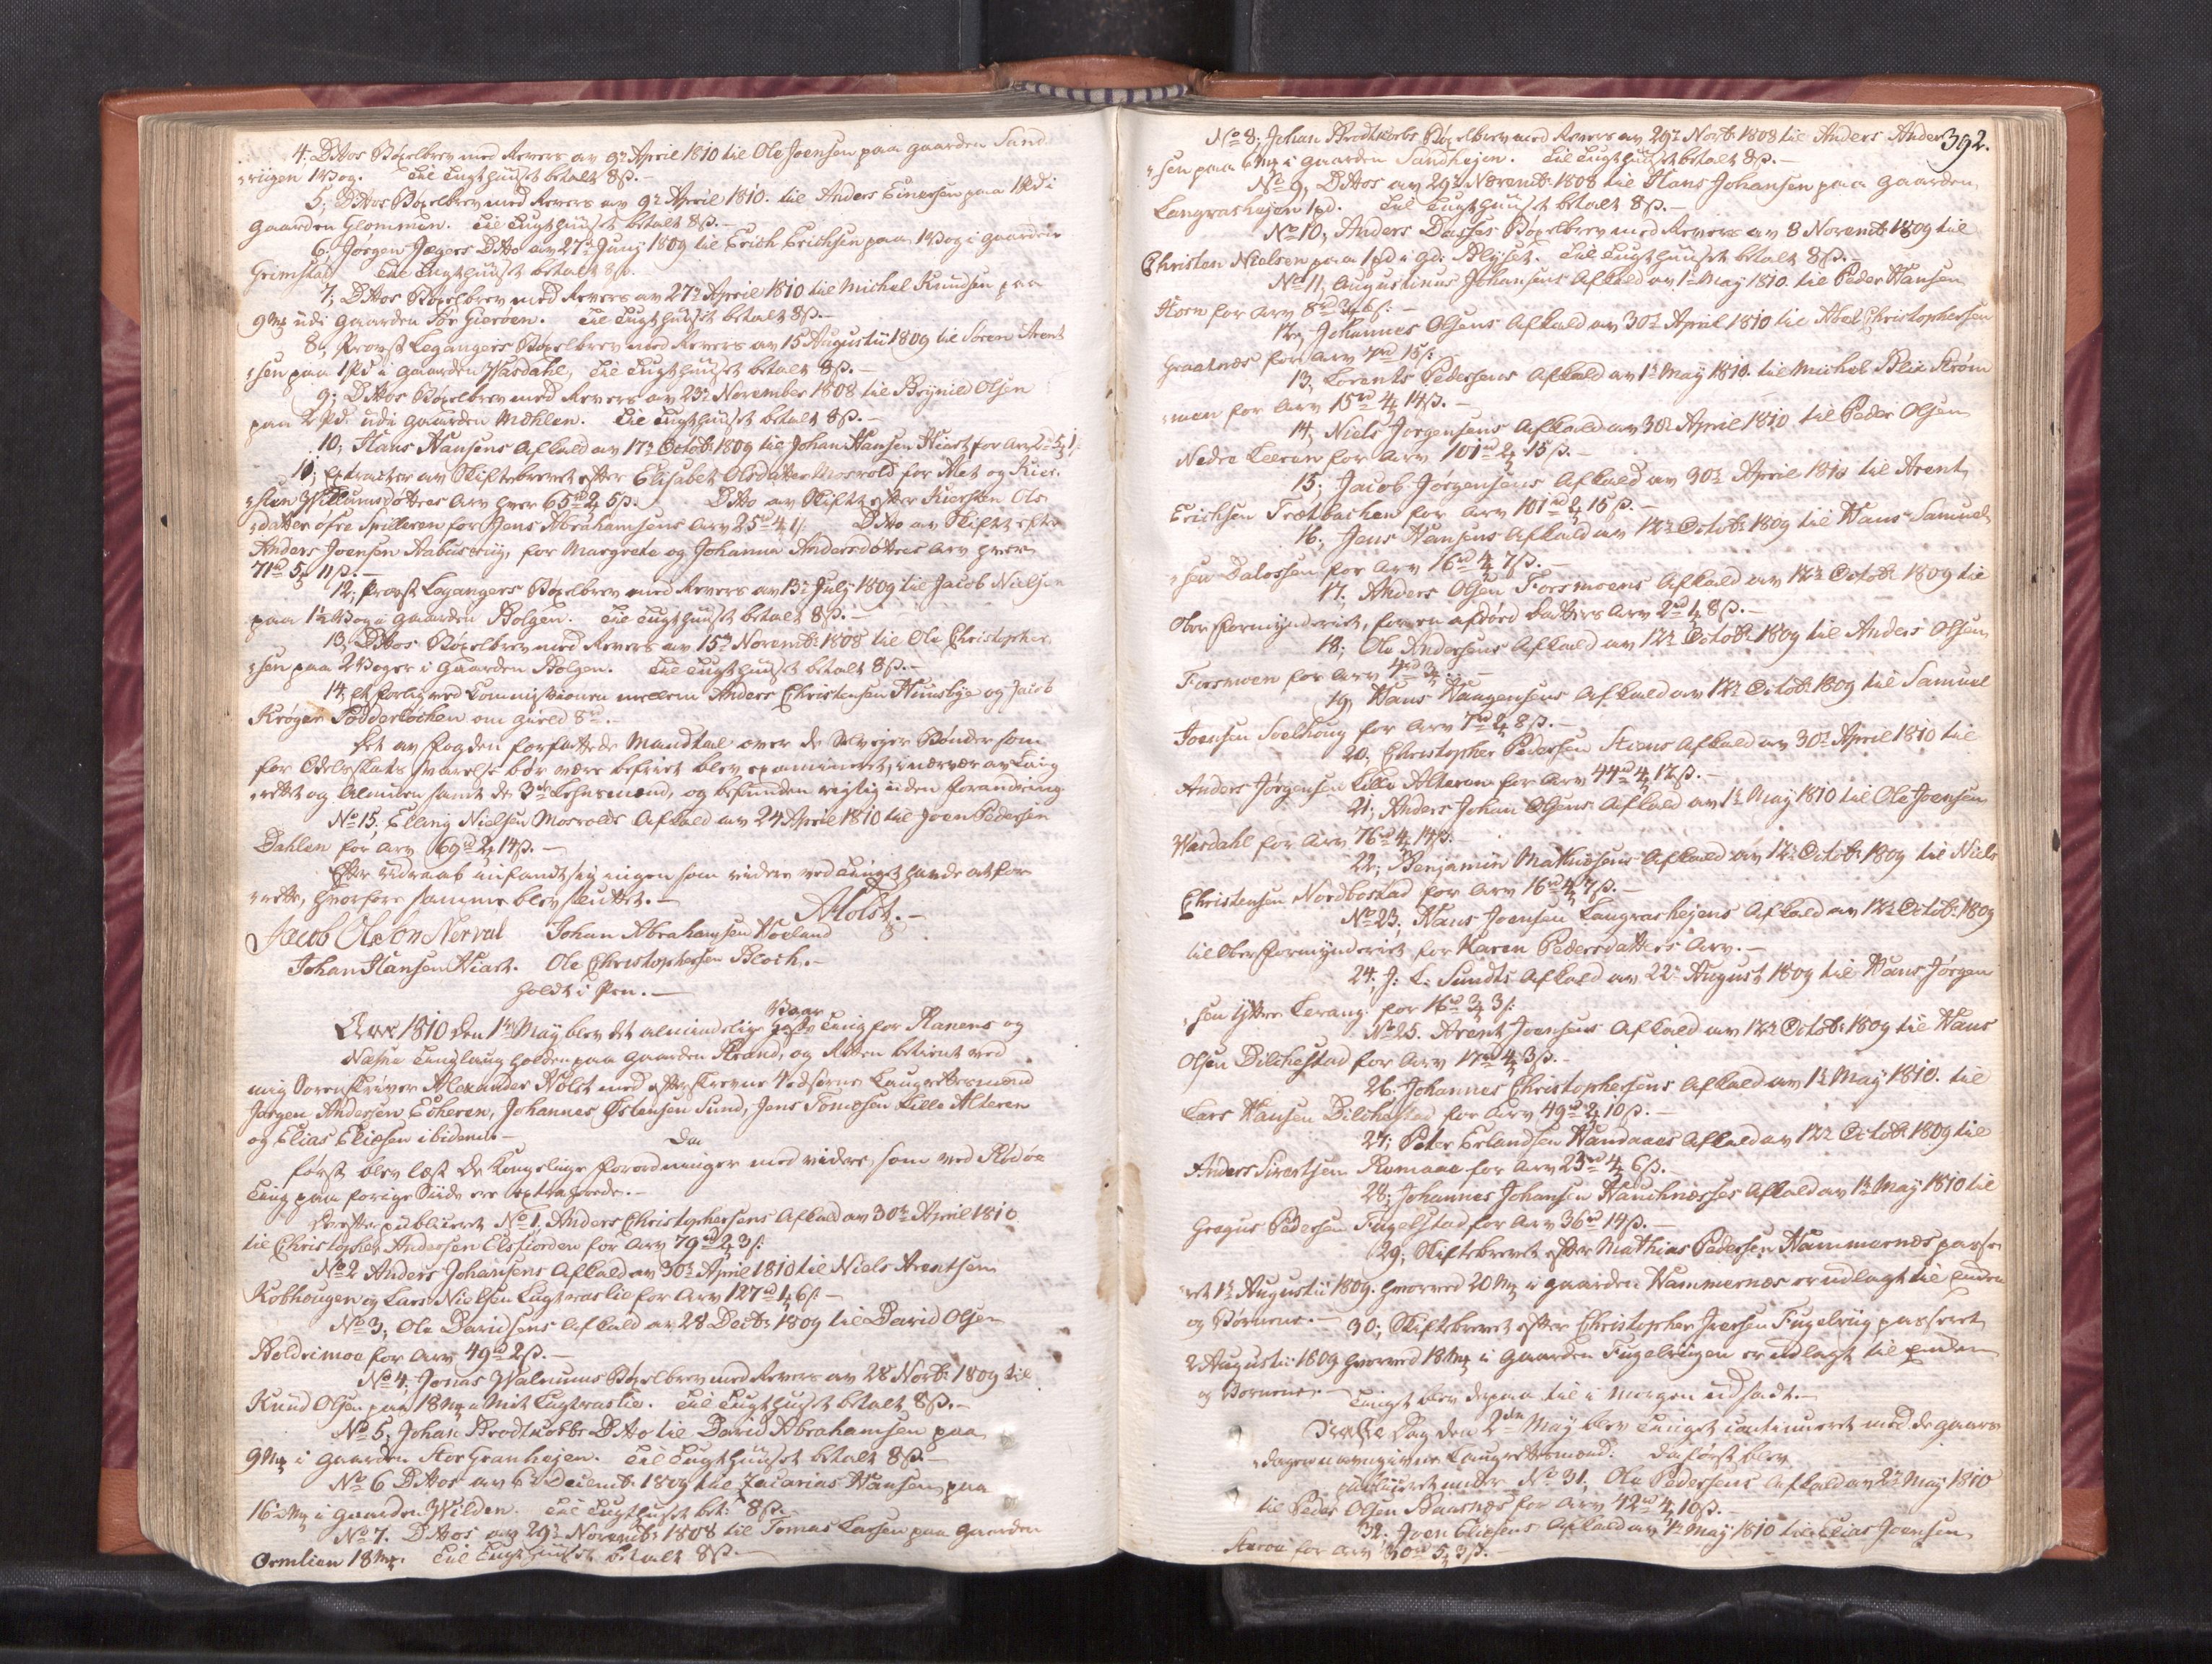 4. Dttos Bøxelbrev med Revers av 9de April 1810 til Ole Joensen paa gaarden Sand
-vigen 1 Vog. Til Tugthuuset betalt 8 ß.-
5; Dttos Bøxelbrev med Revers av 9de April 1810. til Anders Einersen paa 1 Pd i
gaarden Glommen. Til Tugthuuset betalt 8 ß.-
6, Jørgen Jægers Ditto av 27de Juny 1809 til Erich Erichsen paa 1 Vog i gaarden
Grimstad Til Tugthuuset betalt 8 ß.
7; Dttos Bøxelbrev med Revers av 27de April 1810 til Michel Knudsen paa
9 mk udi gaarden Sør Gierøen. Til Tugthuuset betalt 8 ß.-
8, Provst Legangers Bøxelbrev med Revers av 15 Augustii 1809 til Søren Arent
-sen paa 1 Pd i gaarden Wasdahl, Til Tugthuuset betalt 8 ß.-
9; Dttos Bøxelbrev med Revers av 23de November 1808 til Brynild Olsen
paa 2 Pd. udi gaarden Møhlen. Til Tugthuuset betalt 8 ß.-
10, Hans Hansens Afkald av 17de Octobr 1809 til Johan Hansen Hiart for Arv
11; Extracter av Skiftebrevet efter Elisabet Olsdatter Mosvold for Met og Kier-
-sten Willumsdøttres Arv hver 65 rd 2 5 ß. Ditto av Skiftet efter Kiersten Ols-
-datter øfre Spilleren for Jens Abrahamsens Arv 25 rd 4 1 ß. Ditto av Skiftet efter
Anders Joensen Aabusvig, for Margrete og Johanna Andersdøttres Arv hver
71 rd 5 11 ß.-
12, Provst Legangers Bøxelbrev med Revers av 13de July 1809 til Jacob Nielsen
paa 1½ Vog i gaarden Bolgen. Til Tugthuuset betalt 8 ß.-
13, Dttos Bøxelbrev med Revers av 15de Novembr 1808 til Ole Christopher-
-sen paa 2 Voger i Gaarden Bolgen. Til Tugthuuset betalt 8 ß.-
14, et forlig ved Commissionen mellem Anders Christensen Huusbye og Jacob
Krøger Todderløchen om gield 8 rd.-
Det av Fogden forfattede Mandtal over de Selveyer Bønder som
for Odelsskats svarelse bør være befriet blev examineret, i nærvær av Laug
-rettet og Almuen samt de 3de Lehnsmænd, og befunden rigtig uden forandring
No 15. Elling Nielsen Mosvolds Afkald av 24 April 1810 til Joen Pedersen
Dahlen for Arv 69 rd 2 14 ß.-
Efter udraab indfandt sig ingen som videre ved Tinget havde at for-
-rette, hvorfore samme blev sluttet.-
AHolst.-
Jacob Olsøn Nerval Johan Abrahamsen Høeland
Johan Hansen Hiart. Ole Christophersen Bloch.-
holdt i Pen.-
Vaar
Anno 1810 den 1te May blev det almindelige Ting for Ranens og
Næsne Tinglaug holden paa gaarden Strand, og Retten betient ved
mig Sorenskriver Alexander Holst med efterskrevne Eedsorne Laugrettesmænd
Jørgen Andersen Echeren, Johannes Østensen Sund, Jens Tomæsen Lille Alteren
og Elias Eliæsen ibidem.-
Da
først blev læst de Kongelige Forordninger med videre, som ved Rødøe
Ting paa forige Siide ere extraherede.-
Derefter publiceret No 1, Anders Christophersens Afkald av 30te April 1810
til Christopher Andersen Elsfiorden for Arv 79 rd 2 3 ß.
No 2 Anders Johansens Afkald av 30te April 1810 til Niels Arentsen
Kobhougen og Lars Nielsen Lugtvaslie for Arv 127 rd 4 6 ß.-
No 3, Ole Davidsens Afkald av 28 Decbr 1809 til David Olsen
Boldermoe for Arv 49 rd 2 ß.-
No 4, Jonas Walnums Bøxelbrev med Revers av 28 Novbr 1809 til
Knud Olsen paa 18 mk i Mit Lugtvaslie. Til Tugthuuset betalt 8 ß.-
No 5, Johan Brodtkorbs Ditto til David Abrahamsen paa
9 mk i gaarden Stor Granheien. Til Tugthuuset betalt 8 ß.-
No 6 Dttos av 6te Decembr 1809 til Zacarias Hansen paa
16 mk i gaarden Wilden. Til Tugthuuset bet: 8 ß.-
No 7. Dttos av 29de Novembr 1808 til Tomas Larsen paa gaarden
Ormlien 18 mk. Til Tugthuuset betalt 8 ß.-
392.
No 8, Johan Brodtkorbs Bøxelbrev med Revers av 29de Novbr 1808 til Anders Ander
-sen paa 6 mk i gaarden Sandheien. Til Tugthuuset betalt 8 ß.-
No 9, Dttos av 29de Novembr 1808 til Hans Johansen paa gaarden
Langvasheien 1 pd. Til Tugthuuset betalt 8 ß.-
No 10, Anders Dasses Bøxelbrev med Revers av 8 Novembr 1809 til
Christen Nielsen paa 1 pd i gd: Slyset. Til Tugthuuset betalt 8 ß.-
No 11, Augustinus Johansens Afkald av 1te May 1810. til Peder Hansen
Horn for Arv 8 rd 3 6 ß.-
12, Johannes Olsens Afkald av 30te April 1810 til Abel Christophersen
Graatnæs for Arv 7 rd 15 ß.
13, Lorents Pedersens Afkald av 1te May 1810. til Michel Blix Strøm
-men for Arv 15 rd 4 14 ß.-
14, Niels Jørgensens Afkald av 30te April 1810 til Peder Olsen
Nedre Leeren for Arv 101 rd 2 15 ß.-
15; Jacob Jørgensens Afkald av 30te April 1810 til Arent
Erichsen Trætbachen for Arv 101 rd 2 15 ß.-
16; Jens Hansens Afkald av 12te Octobr 1809 til Hans Samuel
-sen Dalossen for Arv 16 rd 4 7 ß.-
17. Anders Olsen Forsmoens Afkald av 12te Octobr 1809 til
Overformynderiet, for en afdøed datters Arv 2 rd 1 8 ß.-
18; Ole Andersens Afkald av 12te Octobr 1809 til Anders Olsen
Forsmoen for Arv 4 rd 3.-
19, Hans Haagensens Afkald av 12te Octobr 1809 til Samuel
Joensen Soelhoug for Arv 7 rd 2 8 ß.-
20, Christopher Pedersen Stiens Afkald av 30te April 1810 til
Anders Jørgensen Lille Alteren for Arv 44 rd 4 12 ß.-
21; Anders Johan Olsens Afkald av 1te May 1810 til Ole Joensen
Wasdahl for Arv 76 rd 4 14 ß.
22; Benjamin Mathiæsens Afkald av 12te Octobr 1809 til Niels
Christensen Nordbostad for Arv 16 rd 4 7 ß.-
No 23, Hans Joensen Langvasheiens Afkald av 12te Octobr 1809
til Overformynderiet for Karen Pedersdatters Arv.-
24, J: L: Sundts Afkald av 22de August 1809 til Hans Jørgen
-sen Yttre Leerang for 16 rd 3 3 ß.
No 25. Arent Joensens Afkald av 12te Octobr 1809 til Hans
Olsen Dilchestad for Arv 17 rd 4 3 ß.-
26. Johannes Christophersens Afkald av 1te May 1810. til
Lars Hansen Dilchestad for Arv 49 rd 2 10 ß.-
27; Peter Erlandsen Handaaes Afkald av 12te Octobr 1809 til
Anders Sivertsen Rømaae for Arv 23 rd 4 6 ß.
28; Johannes Johansen Hauchnæsses Afkald av 1te May 1810 til
Gregus Pedersen Fugelstad for Arv 36 rd 14 ß.-
29; Skiftebrevet efter Mathias Pedersen Hammernæs passe-
-ret 1te Augustii 1809. hvorved 20 mk i gaarden Hammernæs er udlagt til Enken
og Børnene.- 30; Skiftebrevet efter Christopher Iversen Fugelvig passeret
2 Augustii 1809 hvorved 18 mk i gaarden Fugelvigen er udlagt til Enken
og Børnene.- Tinget blev derpaa til i Morgen udsadt.-
Dag den 2den May blev Tinget continueret med de gaars
-dagen navngivne Laugrettesmænd. Da først blev
publiceret under No 31, Ole Pedersens Afkald av 2de May 1810
til Peder Olsen Baasnæs for Arv 42 rd 4 10 ß.-
32, Joen Eliæsens Afkald av 1te May 1810 til Elias Joensen
for Arv 30 rd 5 3 ß.-